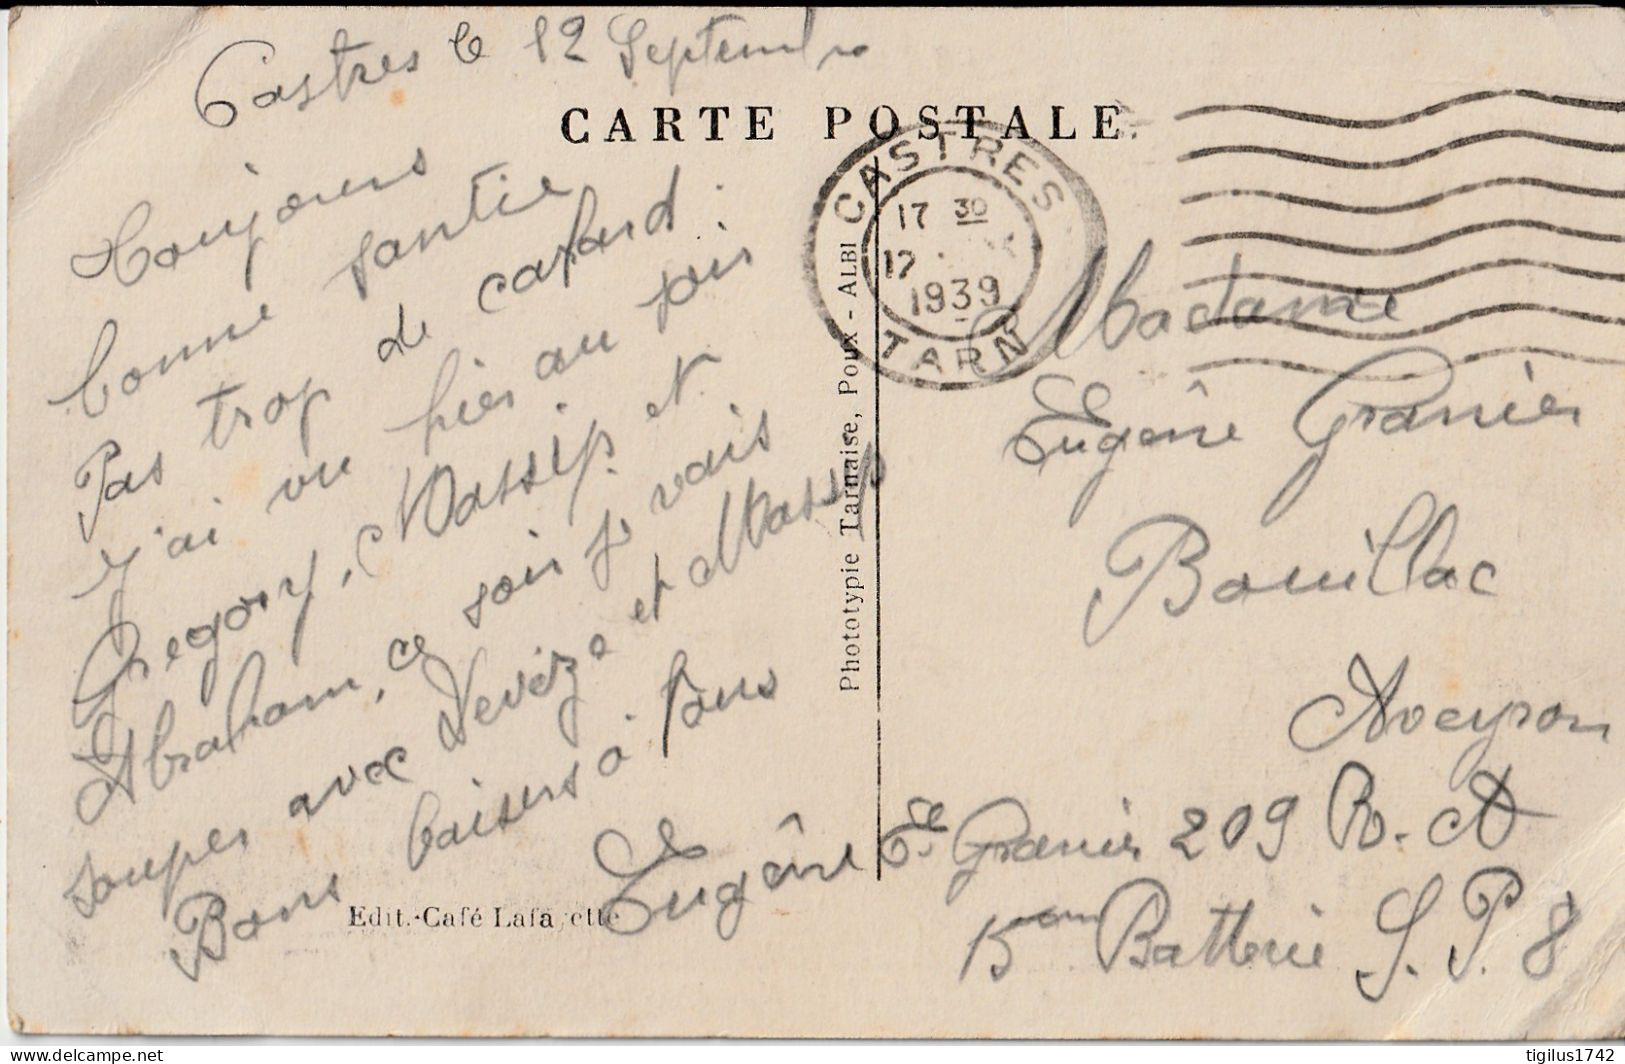 Castres le 12 Septembre
CARTE POSTALE
Toujours
bonne santie
Pas trop de cafard.
J'ai vu hier au soir
Gregory, Massip. et
Abraham, ce soir je vais
souper avec Devèze et Massip
Bons baisers à tous
Eugêne
Edit.-Café Lafayette
Phototypie Tarnaise, Poux - ALBI
CASTRES
17 30
17
1939
TARN
Madame
Eugêne Granier
Bouillac
Aveyron
Granier 209 R. A
15 Batterie S. P. 8
tigilus1742